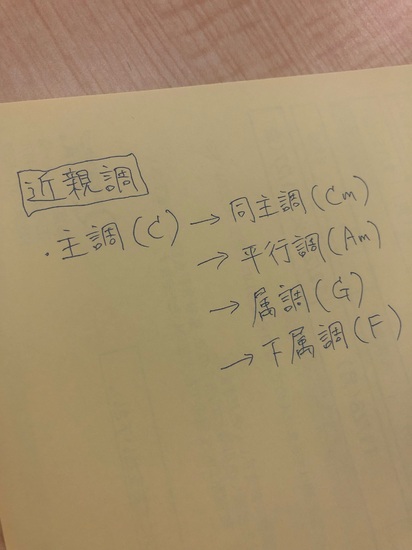 近親調
・主調(C) → 同主調(Cm)
→ 平行調(Am)
→ 属調(G)
→ 下属調(F)